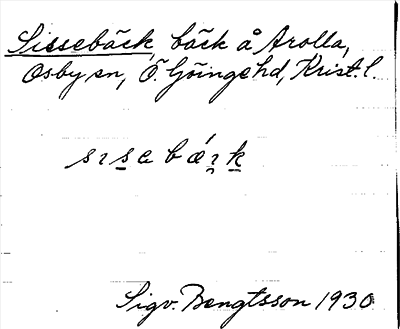 Sissebäck, bäck å Arolla,
Osby sn, Ö. Göinge hd, Krist. l.
Sigv. Bengtsson 1930